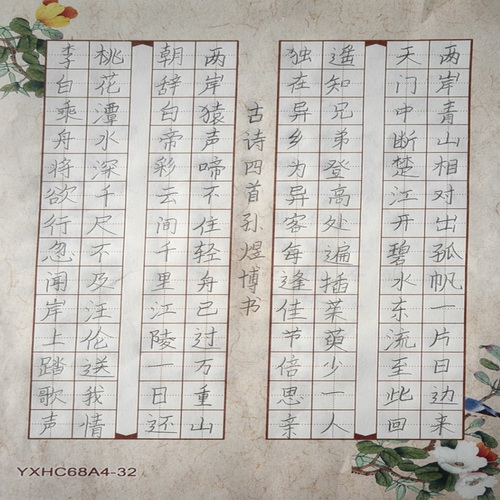 李白乘舟将欲行忽闻岸上踏歌声
桃花潭水深千尺不及汪伦送我情
朝辞白帝彩云间千里江陵一日还
两岸猿声啼不住轻舟已过万重山
古诗四首孙煜博书
独在异乡为异客每逢佳节倍思亲
遥知兄弟登高处遍插茱萸少一人
天门中断楚江开碧水东流至此回
两岸青山相对出孤帆一片日边来
YXHC68A4-32